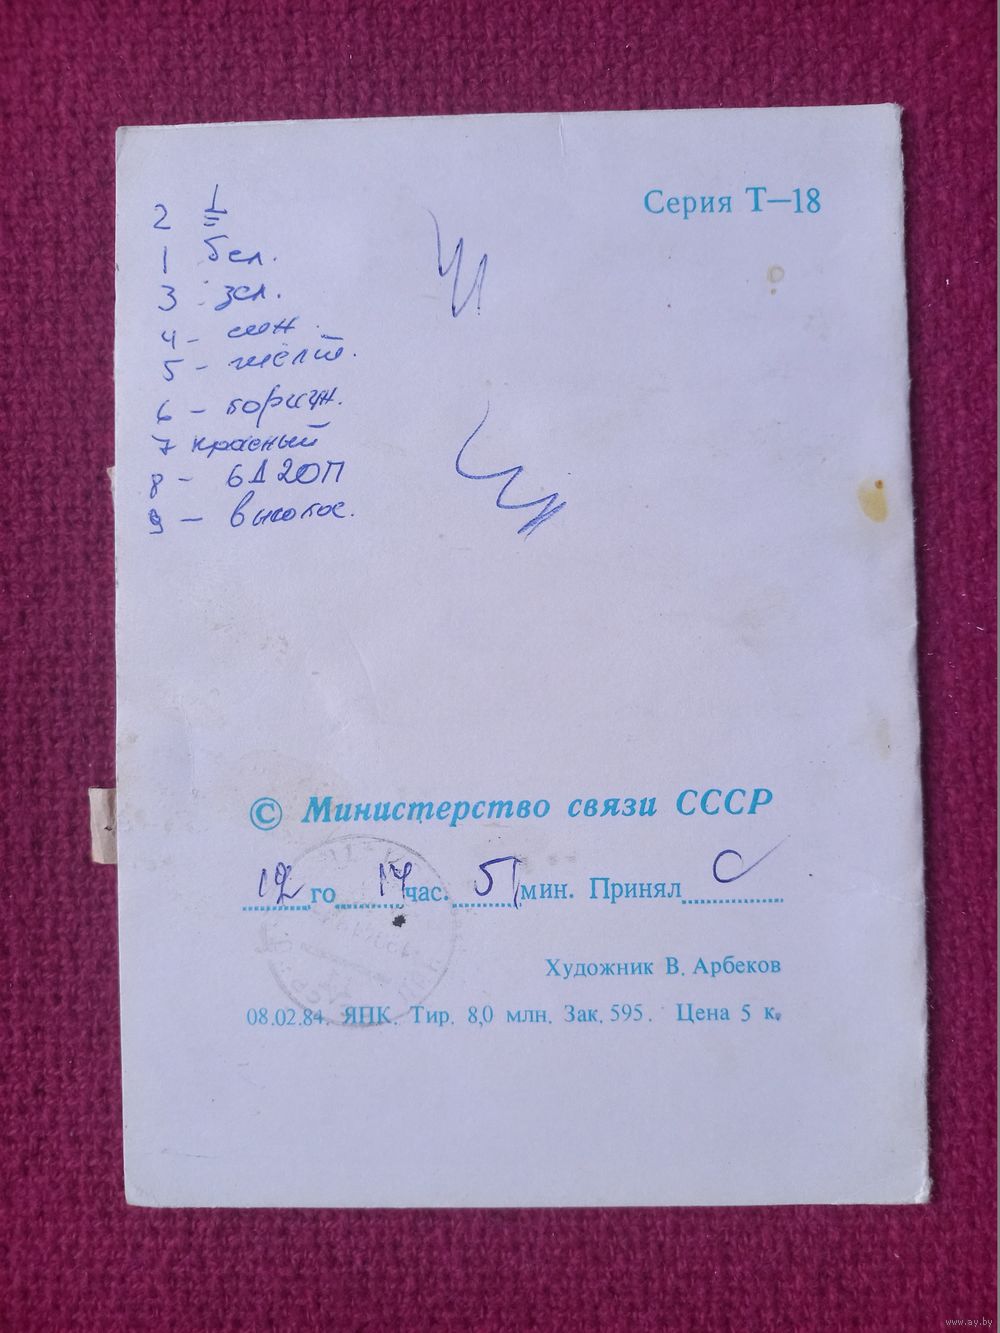 Серия Т—18
2 ⏚
1 бел.
3 зел.
4 - син.
5 - жёлт.
6 - горизн.
7 красный
8 - 6Д20П
9 - высоков.
© Министерство связи СССР
12 го 14 час. 51 мин. Принял
Художник В. Арбеков
08.02.84. ЯПК. Тир. 8,0 млн. Зак. 595. Цена 5 к.
www.ay.by